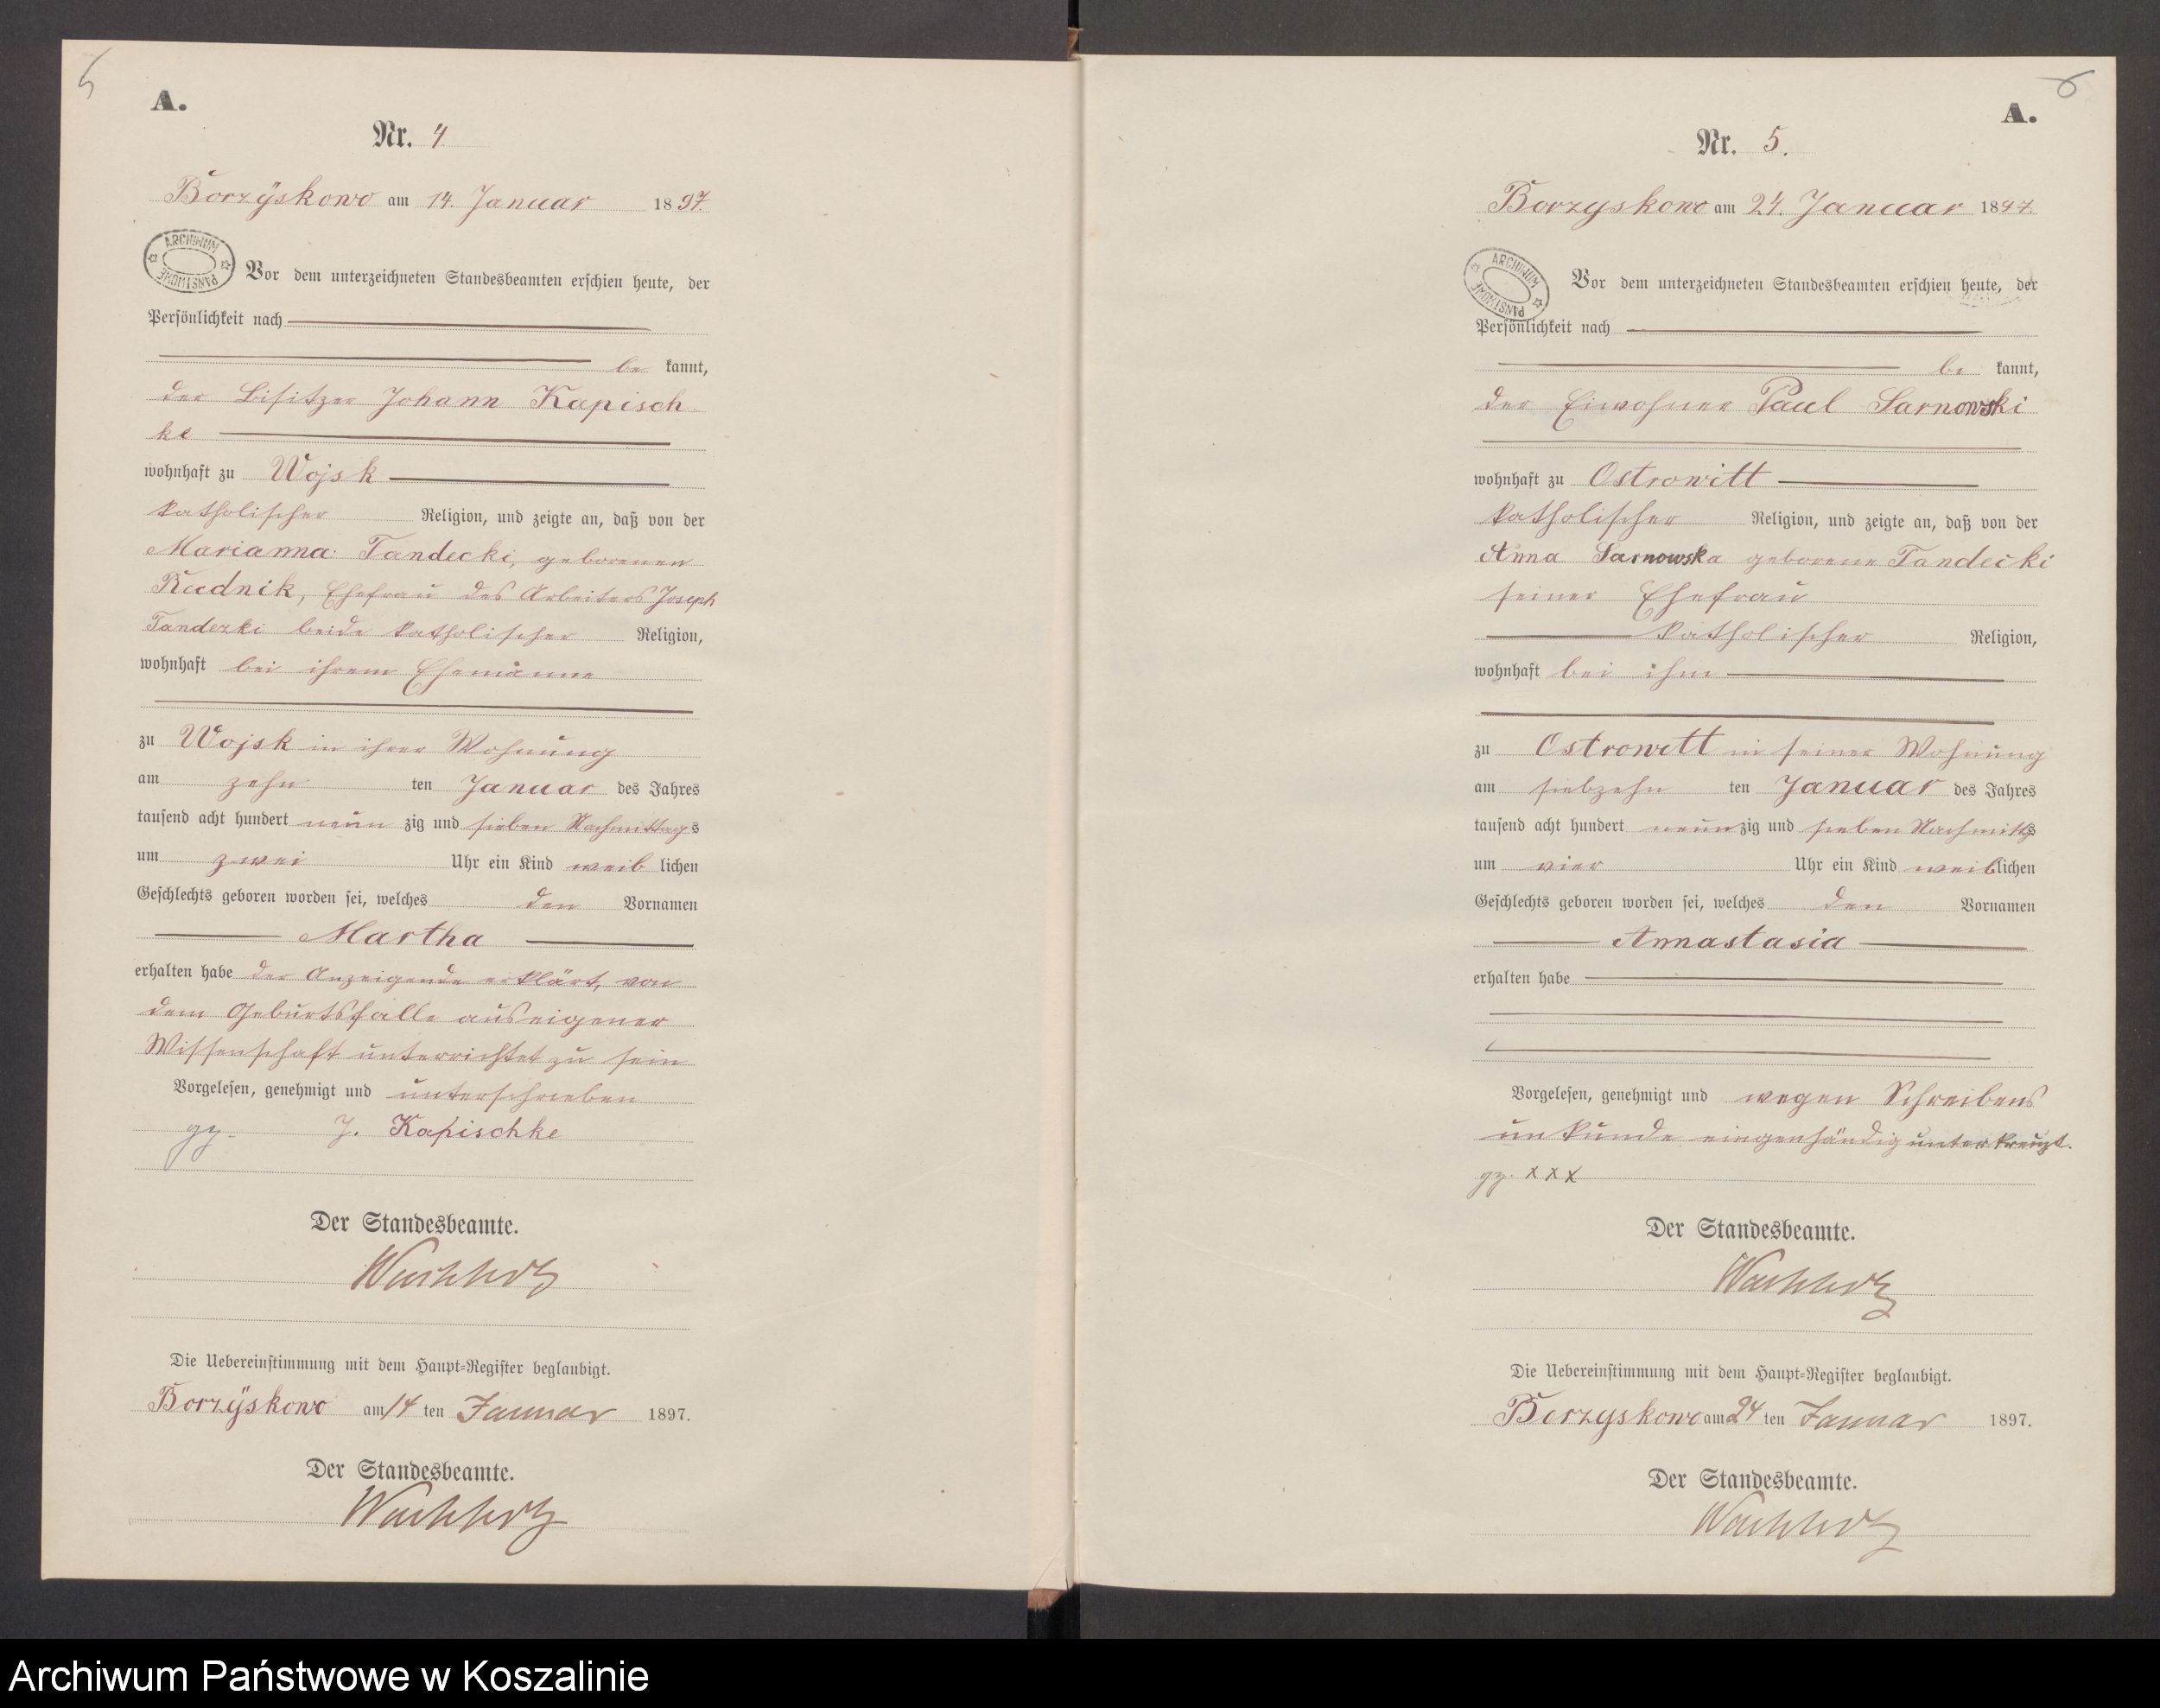 5
A.
Nr. 4
Borzÿskowo am 14. Januar 1897.
ARCHIWUM PAŃSTWOWE
Vor dem unterzeichneten Standesbeamten erschien heute, der
Persönlichkeit nach
be kannt,
der Besitzer Johann Kapisch
ke
wohnhaft zu Wojsk
katholischer Religion, und zeigte an, daß von der
Marianna Tandecki, geborenen
Rudnik, Ehefrau des Arbeiters Joseph
Tandezki beide katholischer Religion,
wohnhaft bei ihrem Ehemanne
zu Wojsk in ihrer Wohnung
am zehn ten Januar des Jahres
tausend acht hundert neun zig und sieben Nachmittags
um zwei Uhr ein Kind weib lichen
Geschlechts geboren worden sei, welches den Vornamen
Martha
erhalten habe der Anzeigende erklärt, von
dem Geburtsfalle aus eigener
Wissenschaft unterrichtet zu sein
Vorgelesen, genehmigt und unterschrieben
gz. J. Kapischke
Der Standesbeamte.
Wachholz
Die Uebereinstimmung mit dem Haupt-Register beglaubigt.
Borzÿskowo am 14 ten Januar 1897.
Der Standesbeamte.
Wachholz
6
A.
Nr. 5.
Borzyskowo am 24. Januar 1897.
ARCHIWUM PAŃSTWOWE
Vor dem unterzeichneten Standesbeamten erschien heute, der
Persönlichkeit nach
be kannt,
der Eiwohner Paul Sarnowski
wohnhaft zu Ostrowitt
katholischer Religion, und zeigte an, daß von der
Anna Sarnowska geborene Tandecki
seiner Ehefrau
katholischer Religion,
wohnhaft bei ihm
zu Ostrowitt in seiner Wohnung
am siebzehn ten Januar des Jahres
tausend acht hundert neunzig und sieben Nachmittgs
um vier Uhr ein Kind weiblichen
Geschlechts geboren worden sei, welches den Vornamen
Annastasia
erhalten habe
Vorgelesen, genehmigt und wegen Schreibens
unkunde eingenhändig unterkreuzt.
gz. x x x
Der Standesbeamte.
Wachholz
Die Uebereinstimmung mit dem Haupt-Register beglaubigt.
Borzyskowo am 24 ten Januar 1897.
Der Standesbeamte.
Wachholz
Archiwum Państwowe w Koszalinie